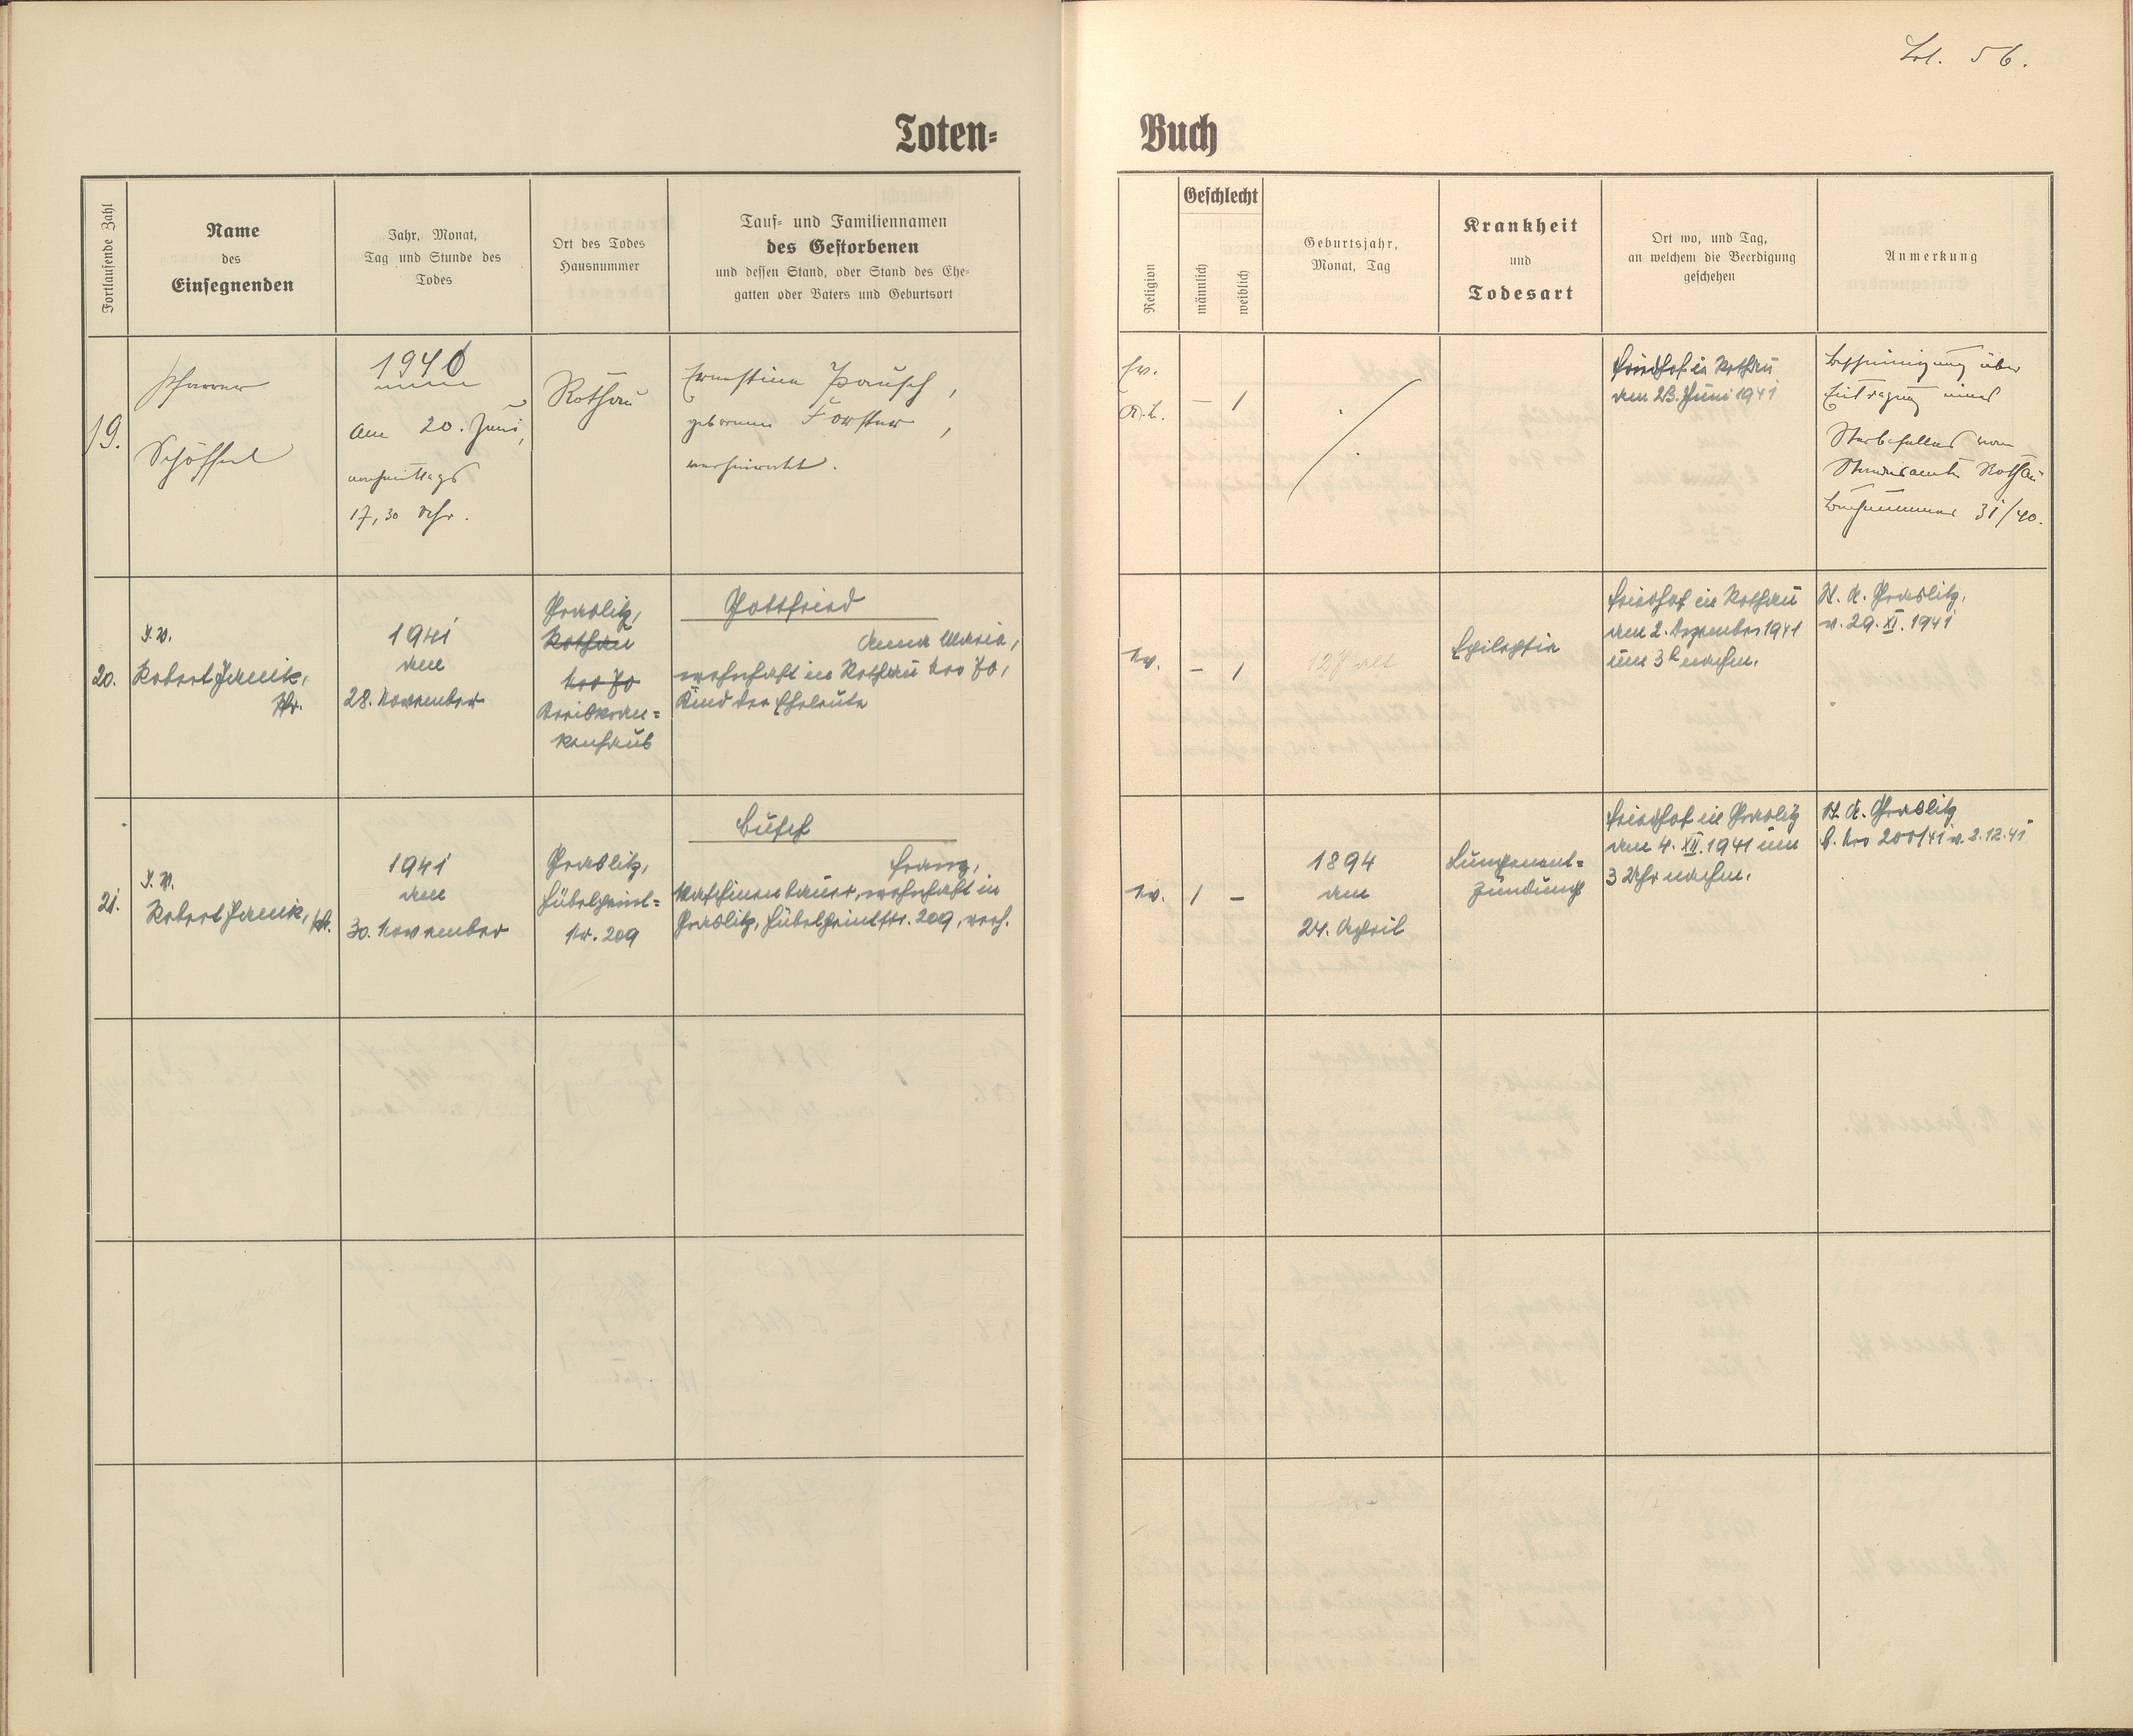 Fol. 56.
Toten-Buch
Fortlaufende Zahl
Name
des
Einsegnenden
Jahr, Monat,
Tag und Stunde des
Todes
Ort des Todes
Hausnummer
Tauf- und Familiennamen
des Gestorbenen
und dessen Stand, oder Stand des Ehe-
gatten oder Vaters und Geburtsort
Religion
Geschlecht
männlich
weiblich
Geburtsjahr,
Monat, Tag
Krankheit
und
Todesart
Ort wo, und Tag,
an welchem die Beerdigung
geschehen
Anmerkung
19.
Pfarrer
Schöffel
1940
am 20. Juni,
nachmittags
17,30 Uhr.
Rothau
Ernestine Pausch,
geborene Forster,
verheiratet.
Ev.
A.B.
– 1
Friedhof in Rothau
am 23. Juni 1941
Bescheinigung über
Eintragung eines
Sterbefalles vom
Standesamte Rothau
Buchnummer 31/40.
20.
I. V.
Robert Janik,
Pfr.
1941
am
28. November
Graslitz,
Rothau
Nro 70
Kreiskran-
kenhaus
Gottfried
Anna Maria,
wohnhaft in Rothau Nro 70,
Kind der Eheleute
ev.
– 1
12 J alt
Epilepsie
Friedhof in Rothau
am 2. Dezember 1941
um 3h nachm.
St. A. Graslitz,
v. 29. XI. 1941
21.
I. V.
Robert Janik, Pfr.
1941
am
30. November
Graslitz,
Hübelpeint-
Nr. 209
Busch
Franz,
Maschinenbauer, wohnhaft in
Graslitz, Hübelpeintstr. 209, verh.
ev.
1 –
1894
am
24. April
Lungenent-
zündung
Friedhof in Graslitz
am 4. XII. 1941 um
3 Uhr nachm.
St. A. Graslitz
S. Nro 200/41 v. 2.12.41